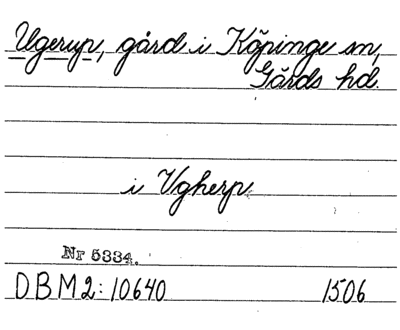 Ugerup, gård i Köpinge sn,
Gärds hd.
i Vgherp
Nr 5334.
DBM2: 10640 1506